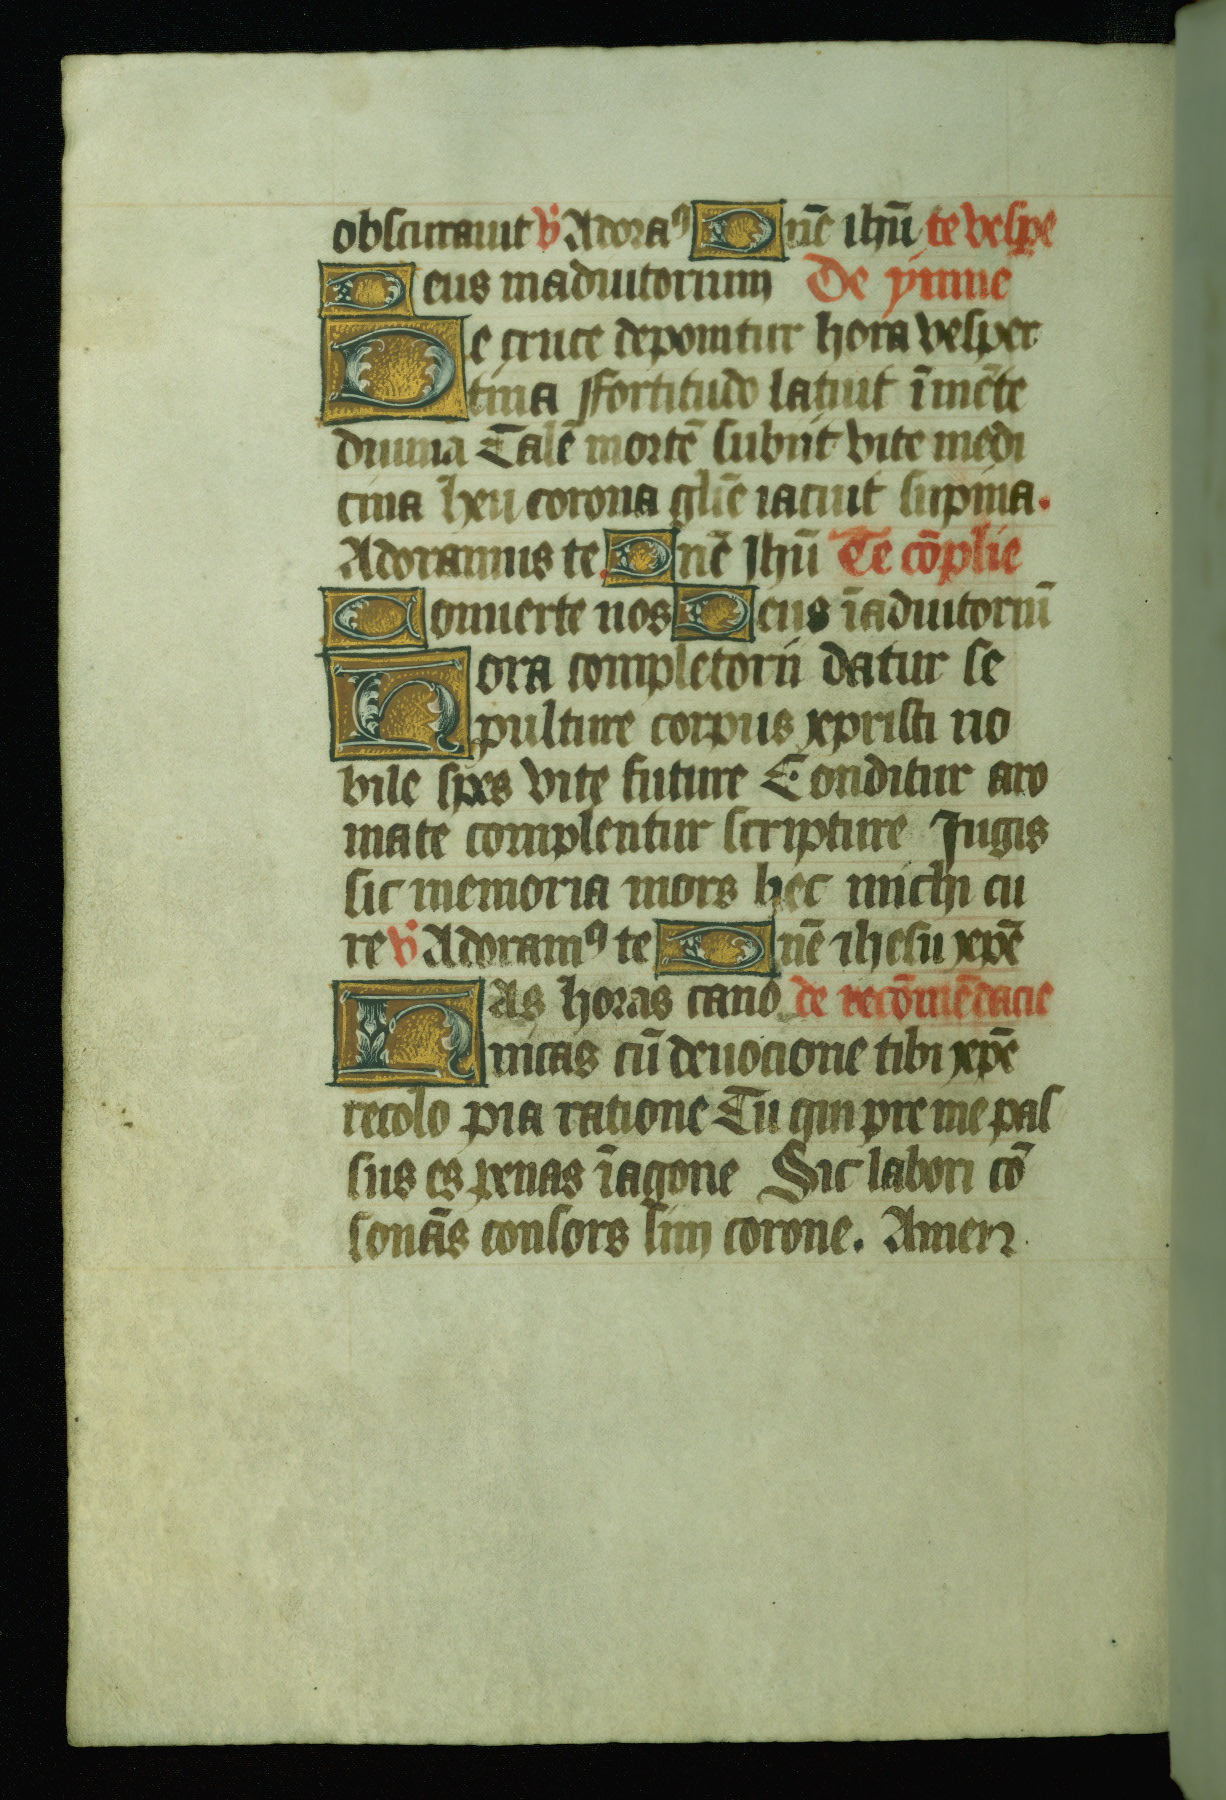 obscurauit v̄ Adoraꝰ Dn̄e ihū te vespe
Deus inadiutorium De ymne
De cruce deponitur hora vesper
tina Ffortitudo latuit ī mēte
diuina Talē mortē subiit vite medi
cina heu corona gl̄ie iacuit supina.
Adoramus te. Dn̄e Jhū Te cōplie
Conuerte nos Deus īadiutoriū
Hora completorii datur se
pulture corpus xpristi no
bile spes vite future Conditur aro
mate complentur scripture Jugis
sic memoria mors hec michi cu
re v̄ Adoramꝰ te Dn̄e ihesu xp̄e
Has horas cano de recōmēdacie
nicas cū deuocione tibi xp̄e
recolo pia ratione Tu qui pre me pas
sus es penas īagone Sic labori cō
sonās consors sim corone. Amen